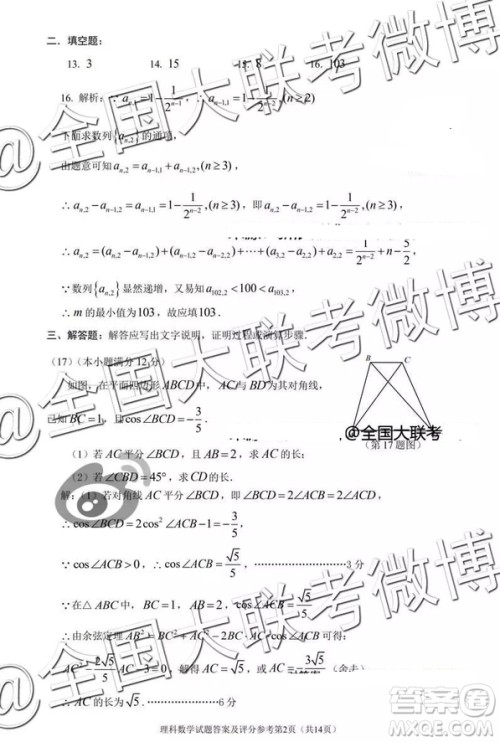 二、填空题：
13. 3 14. 15 15. 8 16. 103
16. 解析：∵a_{n,1}=1-1/2^{n-1}，∴a_{n-1,1}=1-1/2^{n-2},(n≥2)
下面求数列{a_{n,2}}的通项，
由题意可知a_{n,2}=a_{n-1,1}+a_{n-1,2},(n≥3)，
∴a_{n,2}-a_{n-1,2}=a_{n-1,1}=1-1/2^{n-2},(n≥3)，即a_{n,2}-a_{n-1,2}=1-1/2^{n-2},(n≥3)，
∴a_{n,2}=(a_{n,2}-a_{n-1,2})+(a_{n-1,2}-a_{n-2,2})+⋯+(a_{3,2}-a_{2,2})+a_{2,2}=1/2^{n-2}+n-5/2，
∵数列{a_{n,2}}显然递增，又易知a_{102,2}<100<a_{103,2}，
∴m的最小值为103，故应填103．
三、解答题：解答应写出文字说明，证明过程或演算步骤．
(17)（本小题满分12分）
如图，在平面四边形ABCD中，AC与BD为其对角线，
已知BC=1，且cos∠BCD=-3/5．
B C
（第17题图）
（1）若AC平分∠BCD，且AB=2，求AC的长；
（2）若∠CBD=45°，求CD的长．
解：（1）若对角线AC平分∠BCD，即∠BCD=2∠ACB=2∠ACD，
∴cos∠BCD=2cos²∠ACB-1=-3/5，
∵cos∠ACB>0，∴cos∠ACB=√5/5，⋯⋯⋯⋯3分
∵在△ABC中，BC=1，AB=2，cos∠ACB=√5/5，
∴由余弦定理AB²=BC²+AC²-2BC·AC·cos∠ACB可得：
AC²-2√5/5AC-3=0，解得AC=√5，或AC=-3√5/5（舍去），
∴AC的长为√5．⋯⋯⋯⋯6分
理科数学试题答案及评分参考第2页（共14页）
@全国大联考微博
@全国大联考微博
@全国大联考微博
@全国大联考